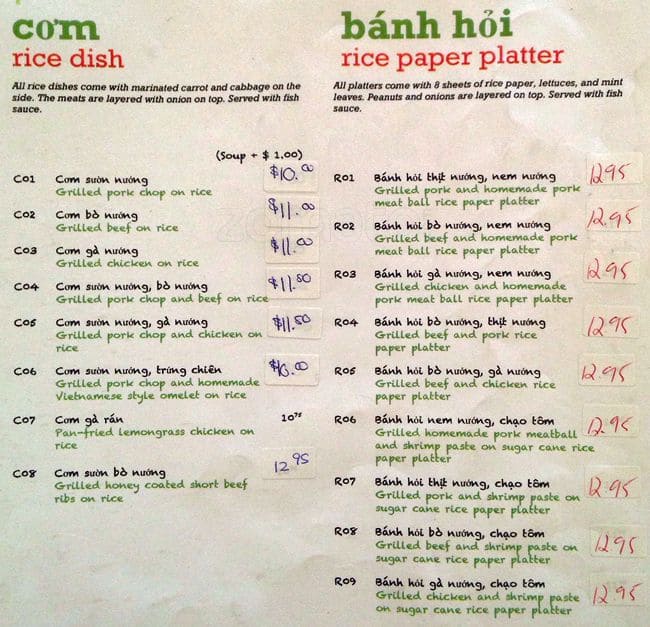 cơm
rice dish
All rice dishes come with marinated carrot and cabbage on the
side. The meats are layered with onion on top. Served with fish
sauce.
(Soup + $ 1.00)
C01 Cơm sườn nướng $10.00
Grilled pork chop on rice
C02 Cơm bò nướng $11.00
Grilled beef on rice
C03 Cơm gà nướng $11.00
Grilled chicken on rice
C04 Cơm sườn nướng, bò nướng $11.50
Grilled pork chop and beef on rice
C05 Cơm sườn nướng, gà nướng $11.50
Grilled pork chop and chicken on
rice
C06 Cơm sườn nướng, trứng chiên
Grilled pork chop and homemade
Vietnamese style omelet on rice
C07 Cơm gà rán 1075
Pan-fried lemongrass chicken on
rice
C08 Cơm sườn bò nướng 12.95
Grilled honey coated short beef
ribs on rice
bánh hỏi
rice paper platter
All platters come with 8 sheets of rice paper, lettuces, and mint
leaves. Peanuts and onions are layered on top. Served with fish
sauce.
R01 Bánh hỏi thịt nướng, nem nướng 1295
Grilled pork and homemade pork
meat ball rice paper platter
R02 Bánh hỏi bò nướng, nem nướng 12.95
Grilled beef and homemade pork
meat ball rice paper platter
R03 Bánh hỏi gà nướng, nem nướng 12.95
Grilled chicken and homemade
pork meat ball rice paper platter
R04 Bánh hỏi bò nướng, thịt nướng 12.95
Grilled beef and pork rice
paper platter
R05 Bánh hỏi bò nướng, gà nướng 12.95
Grilled beef and chicken rice
paper platter
R06 Bánh hỏi nem nướng, chạo tôm 12.95
Grilled homemade pork meatball
and shrimp paste on sugar cane rice
paper platter
R07 Bánh hỏi thịt nướng, chạo tôm 12.95
Grilled pork and shrimp paste on
sugar cane rice paper platter
R08 Bánh hỏi bò nướng, chạo tôm 12.95
Grilled beef and shrimp paste on
sugar cane rice paper platter
R09 Bánh hỏi gà nướng, chạo tôm 12.95
Grilled chicken and shrimp paste
on sugar cane rice paper platter